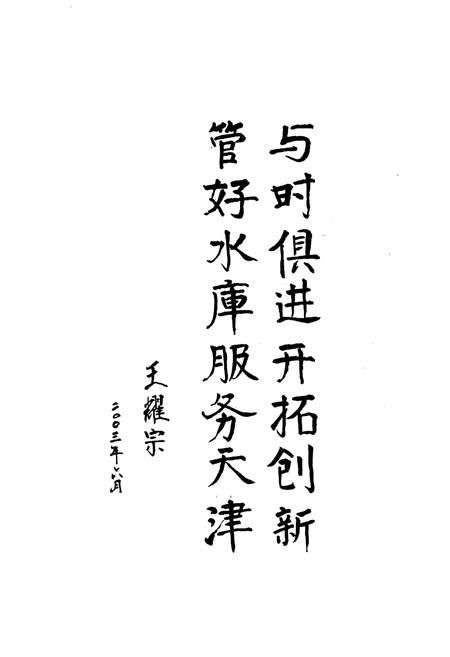 与时俱进开拓创新
管好水庫服务天津
王耀宗
二〇〇三年六月